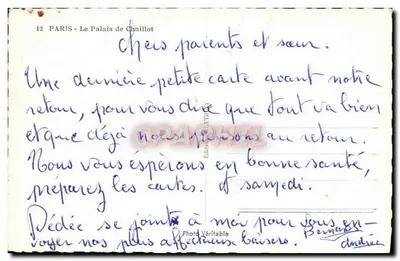 12 PARIS - Le Palais de Chaillot
Chers parents et sœur.
Une dernière petite carte avant notre
retour, pour vous dire que tout va bien
et que déjà nous pensons au retour.
Nous vous éspèrons en bonne santé,
préparez les cartes. A samedi.
Dédée se joint à moi pour vous en-
voyer nos plus affectueux baisers. Bernard
Andrée
Photo Véritable